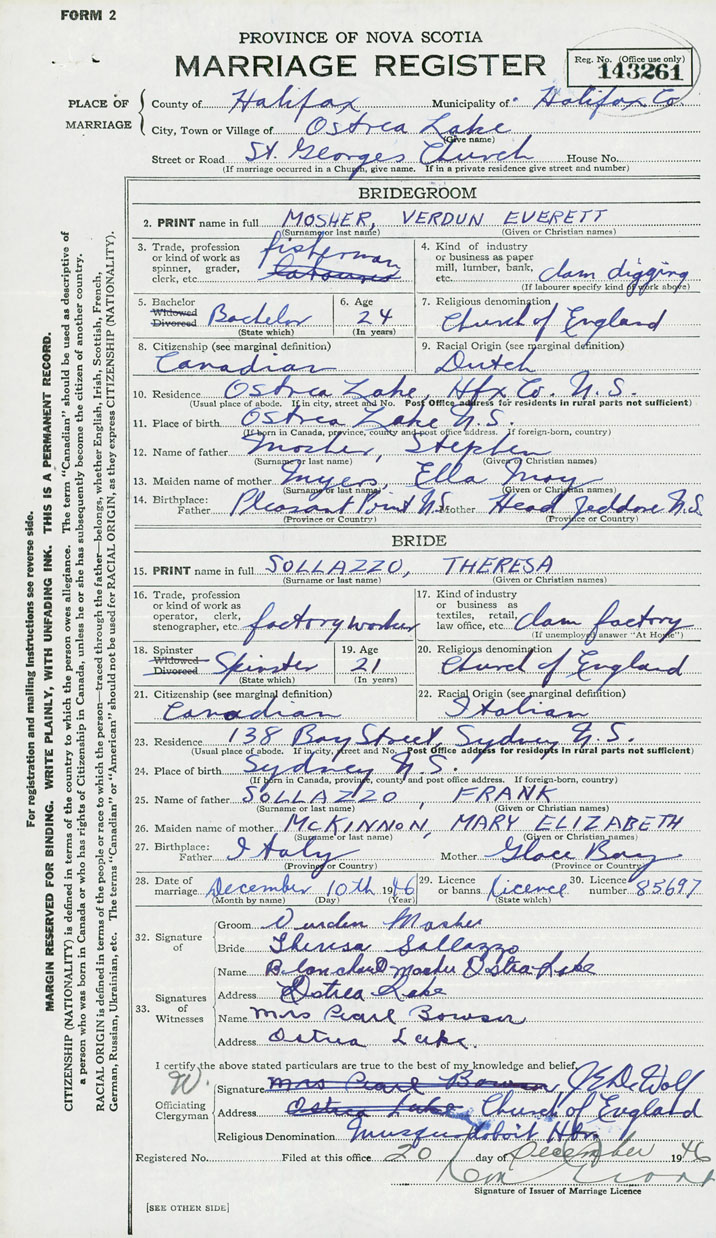 FORM 2
PROVINCE OF NOVA SCOTIA
MARRIAGE REGISTER
Reg. No. (Office use only)
143261
PLACE OF MARRIAGE
County of Halifax Municipality of Halifax Co.
City, Town or Village of Ostrea Lake
(Give name)
Street or Road St. Georges Church House No.
(If marriage occurred in a Church, give name. If in a private residence give street and number)
BRIDEGROOM
2. PRINT name in full MOSHER, VERDUN EVERETT
(Surname or last name) (Given or Christian names)
3. Trade, profession or kind of work as spinner, grader, clerk, etc. fisherman laboured
4. Kind of industry or business as paper mill, lumber, bank, etc. clam digging
(If labourer specify kind of work above)
5. Bachelor Widowed Divorced Bachelor
(State which)
6. Age 24
(In years)
7. Religious denomination Church of England
8. Citizenship (see marginal definition) Canadian
9. Racial Origin (see marginal definition) Dutch
10. Residence Ostrea Lake, Hfx Co. N.S.
(Usual place of abode. If in city, street and No. Post Office address for residents in rural parts not sufficient)
11. Place of birth Ostrea Lake N.S.
(If born in Canada, province, county and post office address. If foreign-born, country)
12. Name of father Mosher, Stephen
(Surname or last name) (Given or Christian names)
13. Maiden name of mother Myers, Ella May
(Surname or last name) (Given or Christian names)
14. Birthplace: Father Pleasant Point N.S. Mother Head Jeddore N.S.
(Province or Country) (Province or Country)
BRIDE
15. PRINT name in full SOLLAZZO, THERESA
(Surname or last name) (Given or Christian names)
16. Trade, profession or kind of work as operator, clerk, stenographer, etc. factory worker
17. Kind of industry or business as textiles, retail, law office, etc. clam factory
(If unemployed answer "At Home")
18. Spinster Widowed Divorced Spinster
(State which)
19. Age 21
(In years)
20. Religious denomination Church of England
21. Citizenship (see marginal definition) Canadian
22. Racial Origin (see marginal definition) Italian
23. Residence 138 Bay Street, Sydney N.S.
(Usual place of abode. If in city, street and No. Post Office address for residents in rural parts not sufficient)
24. Place of birth Sydney N.S.
(If born in Canada, province, county and post office address. If foreign-born, country)
25. Name of father SOLLAZZO, FRANK
(Surname or last name) (Given or Christian names)
26. Maiden name of mother McKINNON, MARY ELIZABETH
(Surname or last name) (Given or Christian names)
27. Birthplace: Father Italy Mother Glace Bay
(Province or Country) (Province or Country)
28. Date of marriage December 10th 1946
(Month by name) (Day) (Year)
29. Licence or banns Licence
(State which)
30. Licence number 85697
32. Signature of
Groom Verdun Mosher
Bride Theresa Sollazzo
33. Signatures of Witnesses
Name Blanchard Mosher Ostrea Lake
Address Ostrea Lake
Name Mrs Pearl Bowser
Address Ostrea Lake.
I certify the above stated particulars are true to the best of my knowledge and belief.
W.
Officiating Clergyman
Signature Mrs Pearl Bowser, J E DeWolf
Address Ostrea Lake Church of England
Religious Denomination Musquodoboit Hbr
Registered No. Filed at this office 20 day of December 1946
Signature of Issuer of Marriage Licence
[SEE OTHER SIDE]
For registration and mailing instructions see reverse side.
MARGIN RESERVED FOR BINDING. WRITE PLAINLY, WITH UNFADING INK. THIS IS A PERMANENT RECORD.
CITIZENSHIP (NATIONALITY) is defined in terms of the country to which the person owes allegiance. The term "Canadian" should be used as descriptive of
a person who was born in Canada or who has rights of Citizenship in Canada, unless he or she has subsequently become the citizen of another country.
RACIAL ORIGIN is defined in terms of the people or race to which the person—traced through the father—belongs, whether English, Irish, Scottish, French,
German, Russian, Ukrainian, etc. The terms "Canadian" or "American" should not be used for RACIAL ORIGIN, as they express CITIZENSHIP (NATIONALITY).